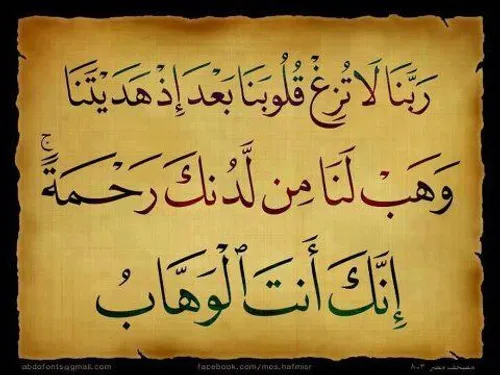 رَبَّنَا لَا تُزِغْ قُلُوبَنَا بَعْدَ إِذْ هَدَيْتَنَا
وَهَبْ لَنَا مِن لَّدُنكَ رَحْمَةً ۚ
إِنَّكَ أَنتَ ٱلْوَهَّابُ
abdofonts@gmail.com facebook.com/mos.hafmisr مصحف مصر ٨٠٣